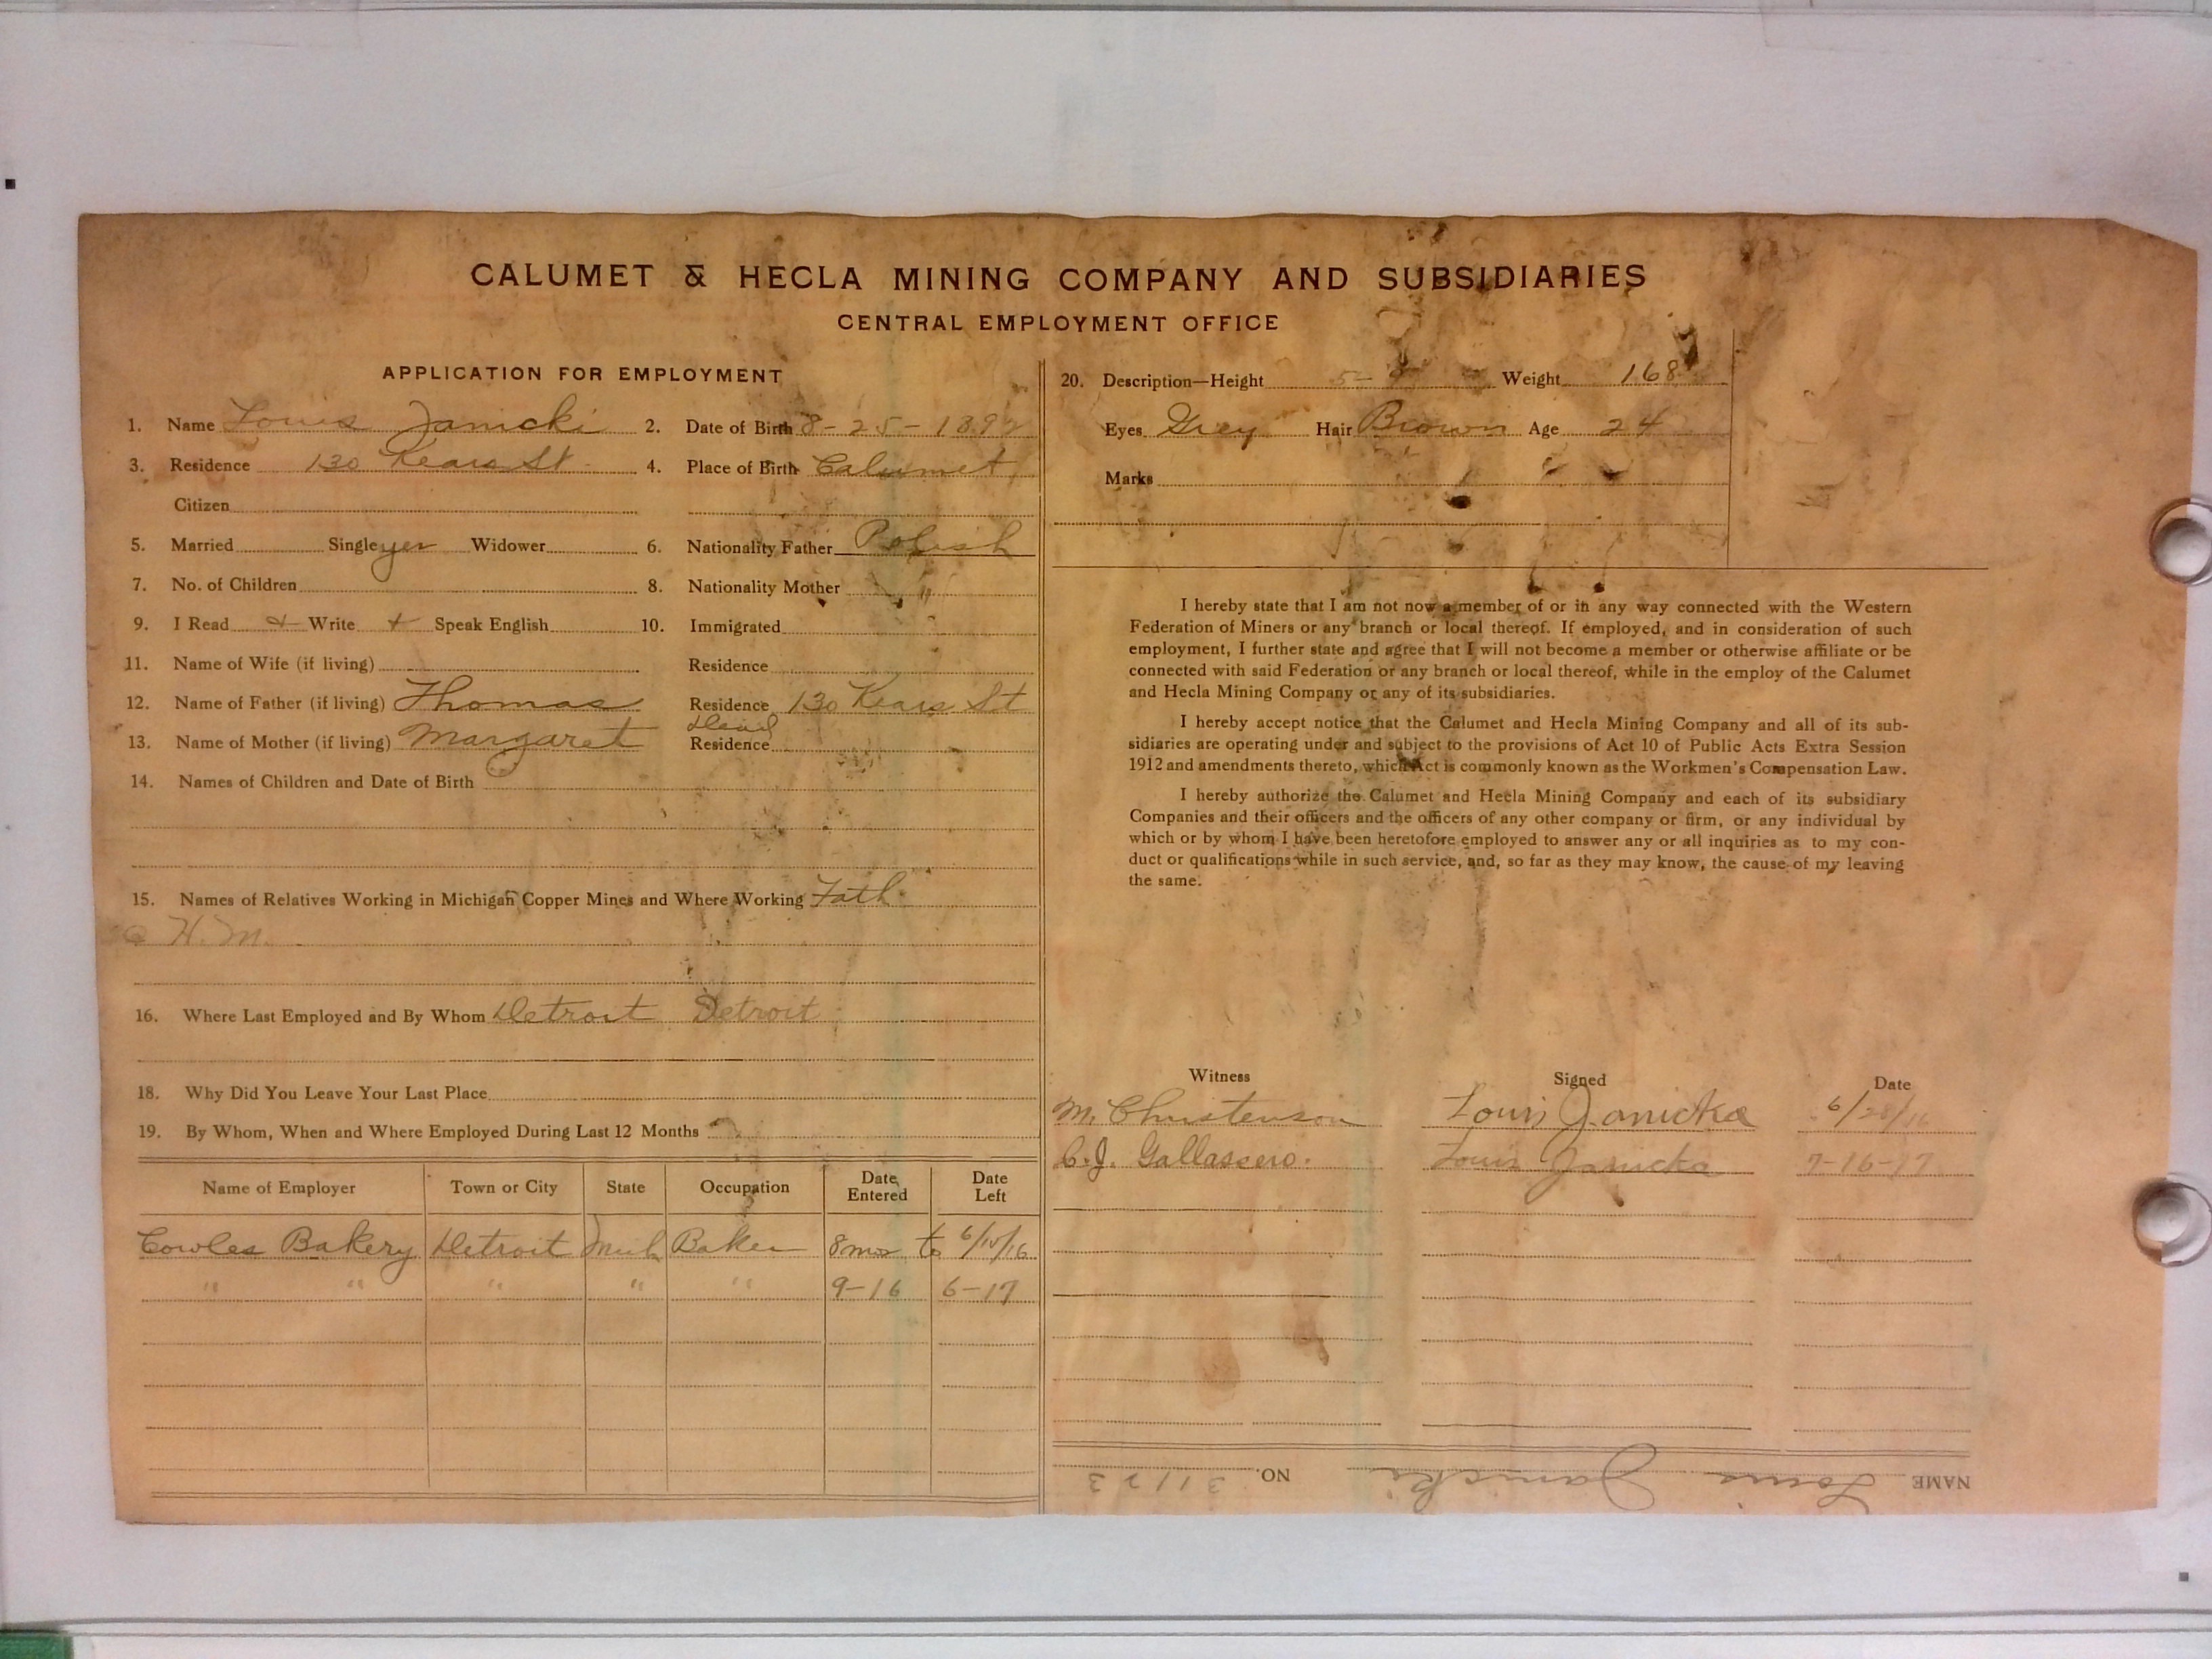 CALUMET & HECLA MINING COMPANY AND SUBSIDIARIES
CENTRAL EMPLOYMENT OFFICE
APPLICATION FOR EMPLOYMENT
1. Name Louis Janicki 2. Date of Birth 8-25-1892
3. Residence 130 Kears St. 4. Place of Birth Calumet
Citizen
5. Married Single yes Widower 6. Nationality Father Polish
7. No. of Children 8. Nationality Mother "
9. I Read + Write + Speak English 10. Immigrated
11. Name of Wife (if living) Residence
12. Name of Father (if living) Thomas Residence 130 Kears St
13. Name of Mother (if living) Margaret Residence Dead
14. Names of Children and Date of Birth
15. Names of Relatives Working in Michigan Copper Mines and Where Working Fath
C H. M.
16. Where Last Employed and By Whom Detroit Detroit
18. Why Did You Leave Your Last Place
19. By Whom, When and Where Employed During Last 12 Months
Name of Employer Town or City State Occupation Date Entered Date Left
Cowles Bakery Detroit Mich Baker 8 mos to 6/15/16
" " " " " 9-16 6-17
20. Description—Height 5- Weight 168
Eyes Grey Hair Brown Age 24
Marks
I hereby state that I am not now a member of or in any way connected with the Western
Federation of Miners or any branch or local thereof. If employed, and in consideration of such
employment, I further state and agree that I will not become a member or otherwise affiliate or be
connected with said Federation or any branch or local thereof, while in the employ of the Calumet
and Hecla Mining Company or any of its subsidiaries.
I hereby accept notice that the Calumet and Hecla Mining Company and all of its sub-
sidiaries are operating under and subject to the provisions of Act 10 of Public Acts Extra Session
1912 and amendments thereto, which Act is commonly known as the Workmen's Compensation Law.
I hereby authorize the Calumet and Hecla Mining Company and each of its subsidiary
Companies and their officers and the officers of any other company or firm, or any individual by
which or by whom I have been heretofore employed to answer any or all inquiries as to my con-
duct or qualifications while in such service, and, so far as they may know, the cause of my leaving
the same.
Witness Signed Date
M. Christenson Louis Janicke 6/28/16
C. J. Gallasero. Louis Janicke 7-16-17
NAME Louis Janicki NO. 31123